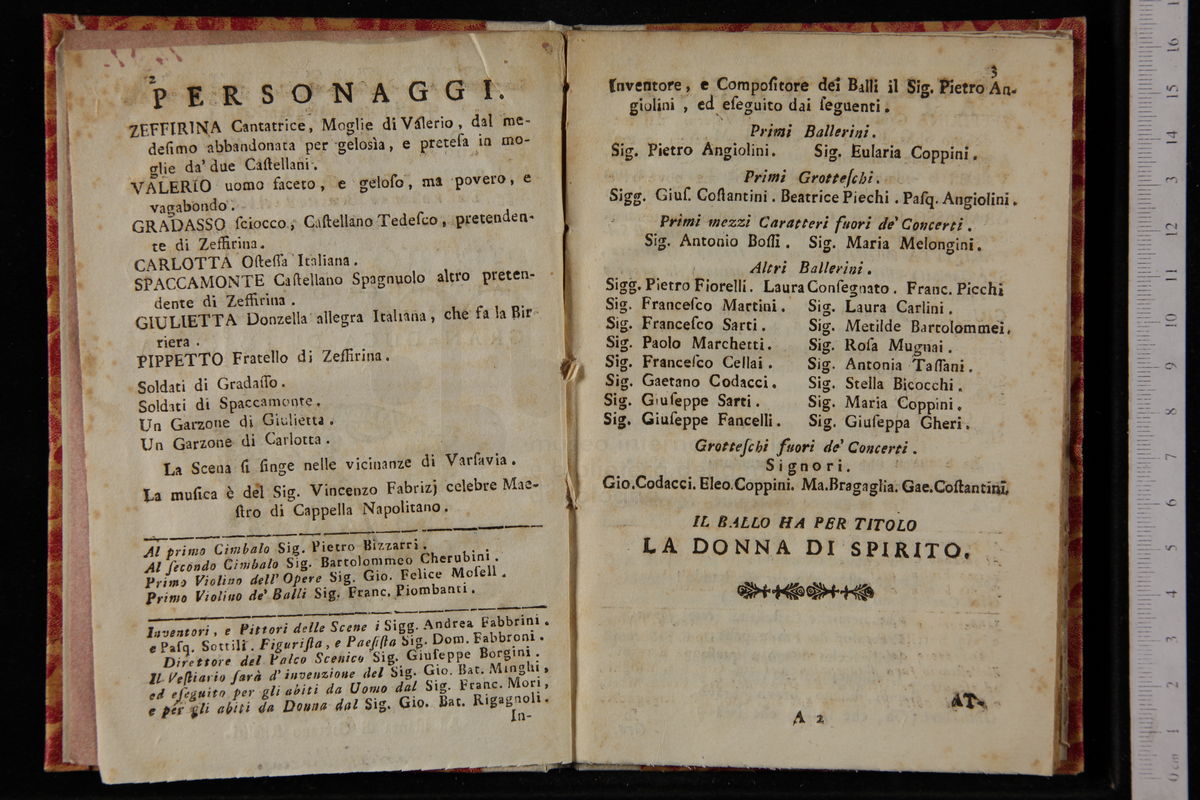 2
PERSONAGGI.
ZEFFIRINA Cantatrice, Moglie di Valerio, dal me-
deſimo abbandonata per geloſìa, e preteſa in mo-
glie da' due Caſtellani.
VALERIO uomo faceto, e geloſo, ma povero, e
vagabondo.
GRADASSO ſciocco, Caſtellano Tedeſco, pretenden-
te di Zeffirina.
CARLOTTA Oſteſſa Italiana.
SPACCAMONTE Caſtellano Spagnuolo altro preten-
dente di Zeffirina.
GIULIETTA Donzella allegra Italiana, che fa la Bir-
riera.
PIPPETTO Fratello di Zeffirina.
Soldati di Gradaſſo.
Soldati di Spaccamonte.
Un Garzone di Giulietta.
Un Garzone di Carlotta.
La Scena ſi finge nelle vicinanze di Varſavia.
La muſica è del Sig. Vincenzo Fabrizj celebre Mae-
ſtro di Cappella Napolitano.
Al primo Cimbalo Sig. Pietro Bizzarri.
Al ſecondo Cimbalo Sig. Bartolommeo Cherubini.
Primo Violino dell' Opere Sig. Gio. Felice Moſell.
Primo Violino de' Balli Sig. Franc. Piombanti.
Inventori, e Pittori delle Scene i Sigg. Andrea Fabbrini.
e Paſq. Sottili. Figuriſta, e Paeſiſta Sig. Dom. Fabbroni.
Direttore del Palco Scenico Sig. Giuſeppe Borgini.
Il Veſtiario ſarà d' invenzione del Sig. Gio. Bat. Minghi,
ed eſeguito per gli abiti da Uomo dal Sig. Franc. Mori,
e per gli abiti da Donna dal Sig. Gio. Bat. Rigagnoli.
In-
3
Inventore, e Compoſitore dei Balli il Sig. Pietro An-
giolini, ed eſeguito dai ſeguenti.
Primi Ballerini.
Sig. Pietro Angiolini. Sig. Eularia Coppini.
Primi Grotteſchi.
Sigg. Giuſ. Coſtantini. Beatrice Piechi. Paſq. Angiolini.
Primi mezzi Caratteri fuori de' Concerti.
Sig. Antonio Boſſi. Sig. Maria Melongini.
Altri Ballerini.
Sigg. Pietro Fiorelli. Laura Conſegnato. Franc. Picchi
Sig. Franceſco Martini. Sig. Laura Carlini.
Sig. Franceſco Sarti. Sig. Metilde Bartolommei.
Sig. Paolo Marchetti. Sig. Roſa Mugnai.
Sig. Franceſco Cellai. Sig. Antonia Taſſani.
Sig. Gaetano Codacci. Sig. Stella Bicocchi.
Sig. Giuſeppe Sarti. Sig. Maria Coppini.
Sig. Giuſeppe Fancelli. Sig. Giuſeppa Gheri.
Grotteſchi fuori de' Concerti.
Signori.
Gio. Codacci. Eleo. Coppini. Ma. Bragaglia. Gae. Coſtantini.
IL BALLO HA PER TITOLO
LA DONNA DI SPIRITO.
A 2
AT-
0 cm 1 2 3 4 5 6 7 8 9 10 11 12 13 14 15 16